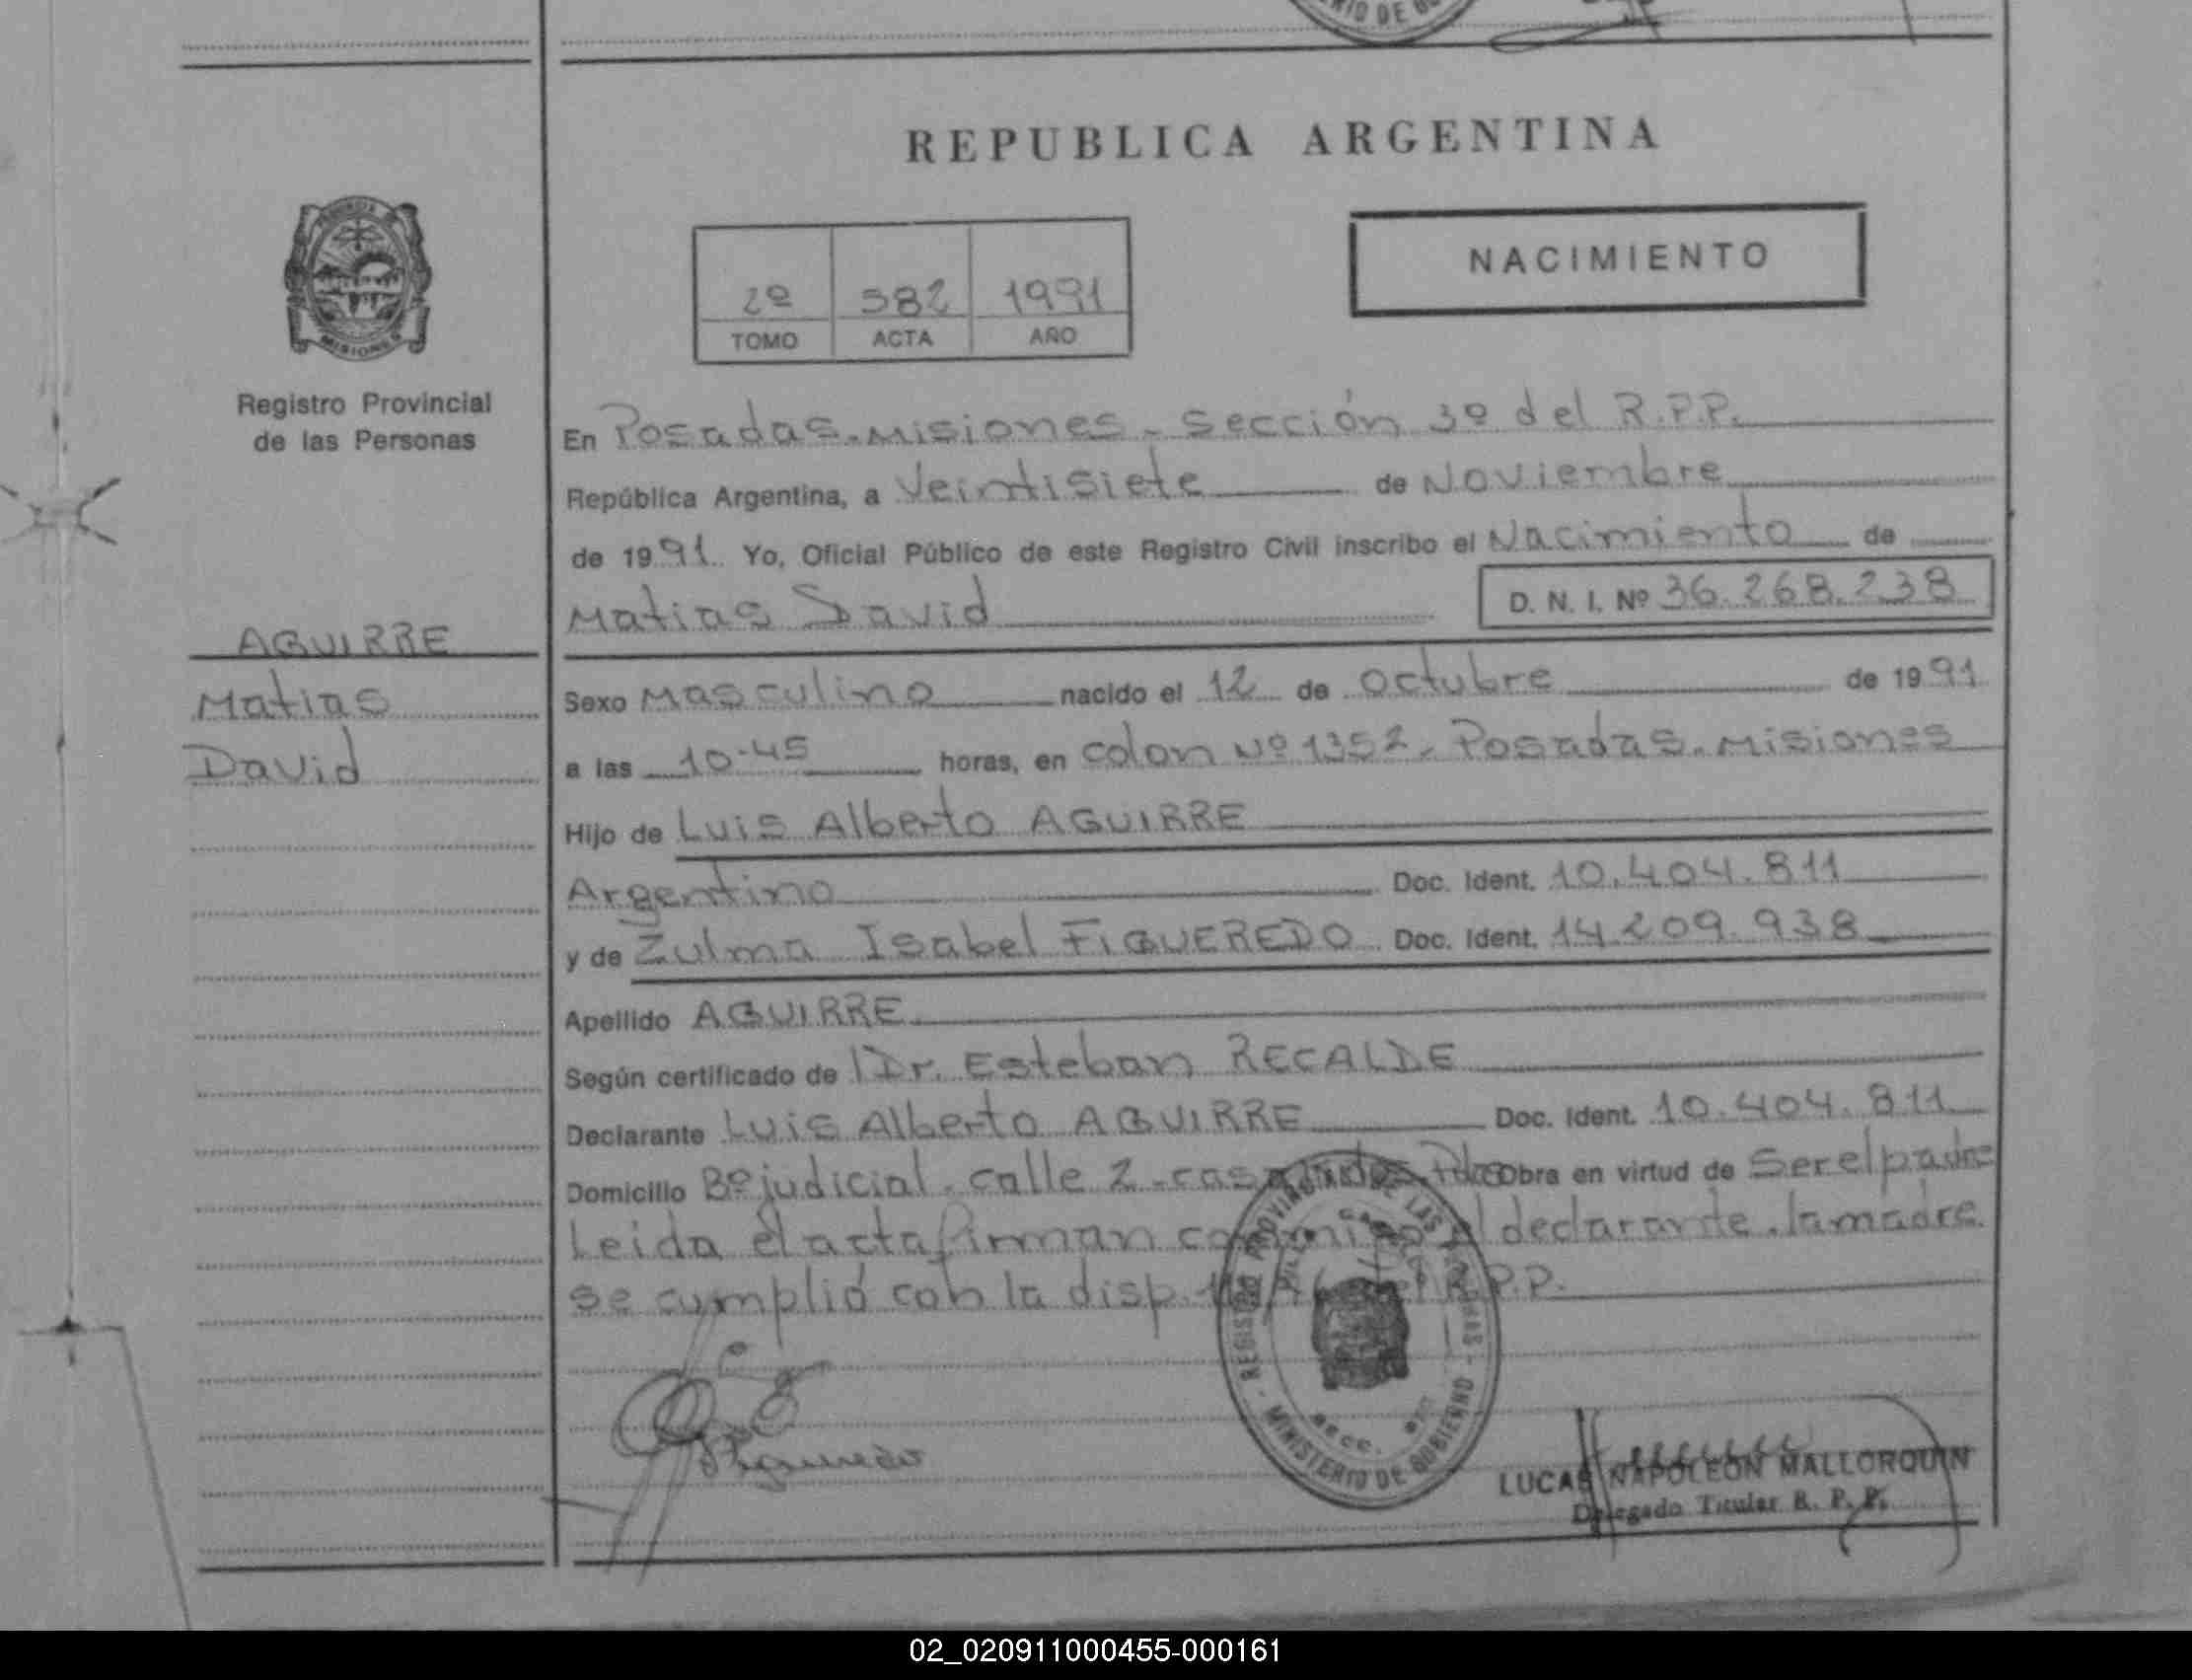 RIO DE
REPUBLICA ARGENTINA
NACIMIENTO
2º 582 1991
TOMO ACTA AÑO
MISIONES
Registro Provincial
de las Personas
En Posadas-Misiones - sección 3º del R.P.P.
República Argentina, a Veintisiete de Noviembre
de 1991 Yo, Oficial Público de este Registro Civil inscribo el Nacimiento de
Matias David
D. N. I. Nº 36.268.238
AGUIRRE
Matias
David
Sexo Masculino nacido el 12 de Octubre de 1991
a las 10-45 horas, en colon Nº 1352 - Posadas - Misiones
Hijo de Luis Alberto AGUIRRE
Argentino Doc. Ident. 10.404.811
y de Zulma Isabel FIGUEREDO Doc. Ident. 14.209.938
Apellido AGUIRRE
Según certificado de Dr. Esteban RECALDE
Declarante Luis Alberto AGUIRRE Doc. Ident. 10.404.811
Domicilio Bº judicial - calle 2 - casa Obra en virtud de Ser el padre
Leida el acta firman conmigo el declarante . la madre.
se cumplió con la disp. R.P.P.
REGISTRO PROVINCIAL DE LAS PERSONAS - MINISTERIO DE GOBIERNO
SECC.
Figueredo
LUCAS NAPOLEON MALLORQUIN
Delegado Titular R. P. P.
02_020911000455-000161